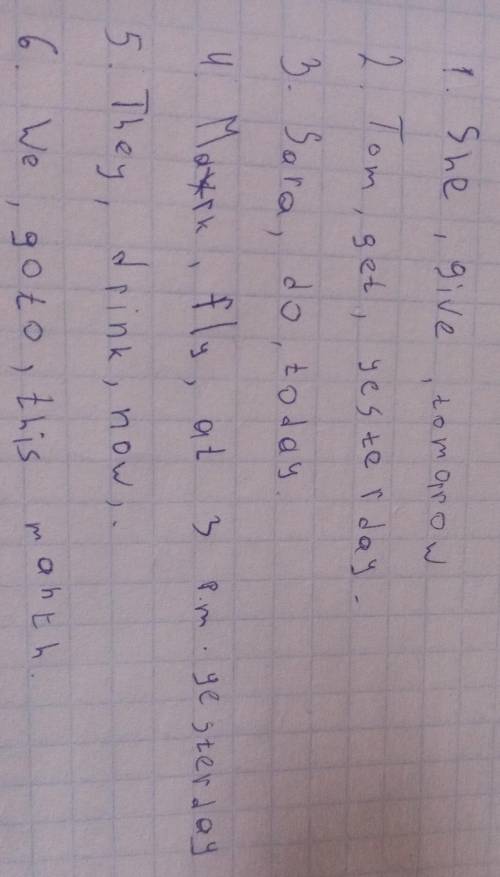 1. She, give, tomorow
2. Tom, get, yesterday.
3. Sara, do, today.
4. Mark, fly, at 3 p.m. yesterday
5. They, drink, now,.
6. We, goto, this mahth.